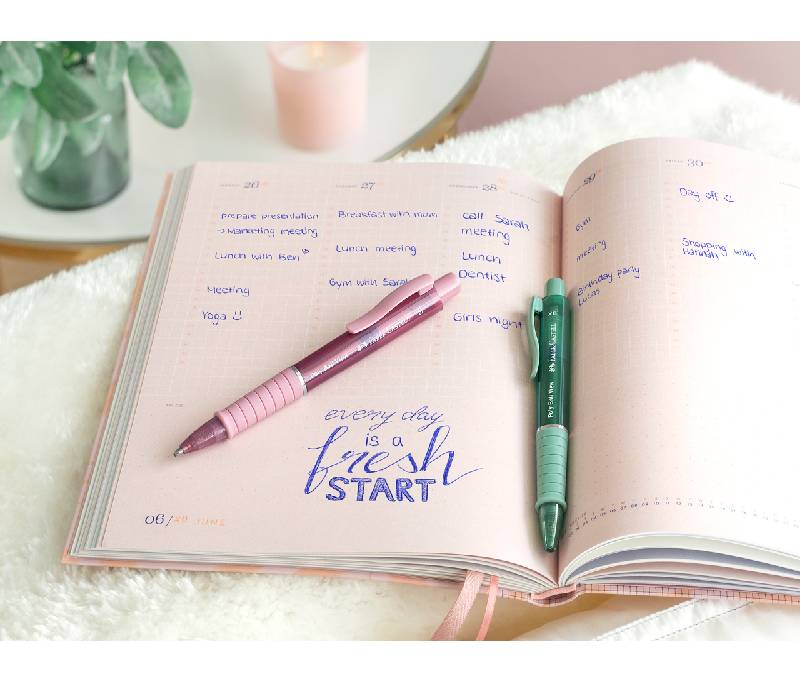 26
prepare presentation
→ Marketing meeting
Lunch with Ben
Meeting
Yoga
27
Breakfast with mum
Lunch meeting
Gym with Sarah
28
call Sarah
meeting
Lunch
Dentist
Girls night
every day
is a
fresh
START
06/
JUNE
29
Gym
meeting
Birthday party
Lucas
30
Day off
Shopping with
Hannah
FABER-CASTELL
Poly Ball View
FABER-CASTELL
XB